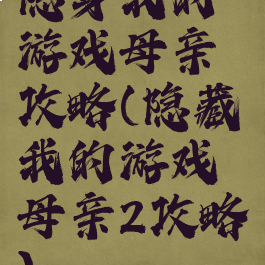 隐身我的
游戏母亲
攻略(隐藏
我的游戏
母亲2攻略
)